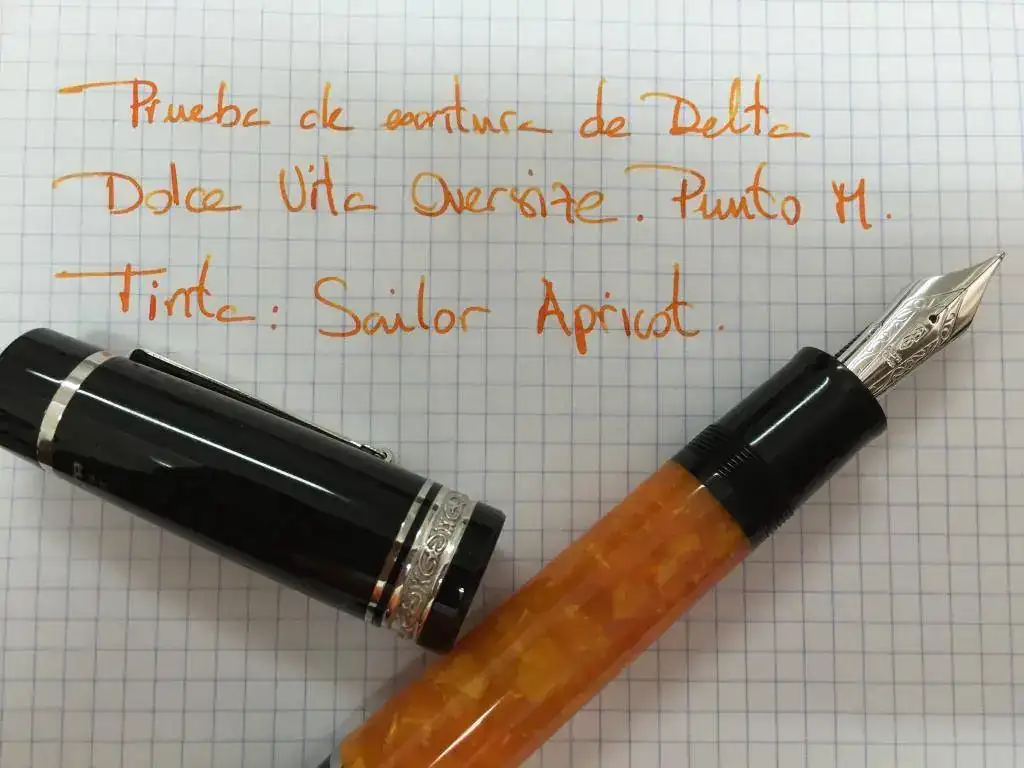 Prueba de escritura de Delta
Dolce Vita Oversize. Punto M.
Tinta: Sailor Apricot.